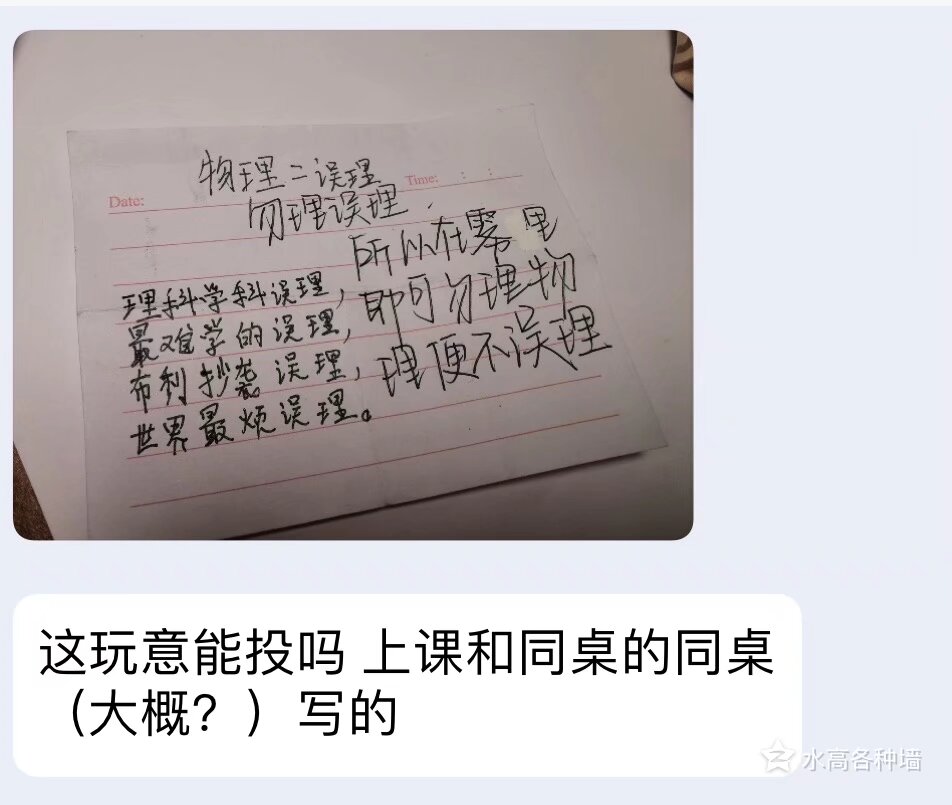 物理=误理
Date:
Time: : :
勿理误理.
理科学科误理,
最难学的误理,
布利抄袭误理,
世界最烦误理。
所以在雾里
即可勿理物
理便不误理
这玩意能投吗 上课和同桌的同桌
（大概？）写的
水高各种墙